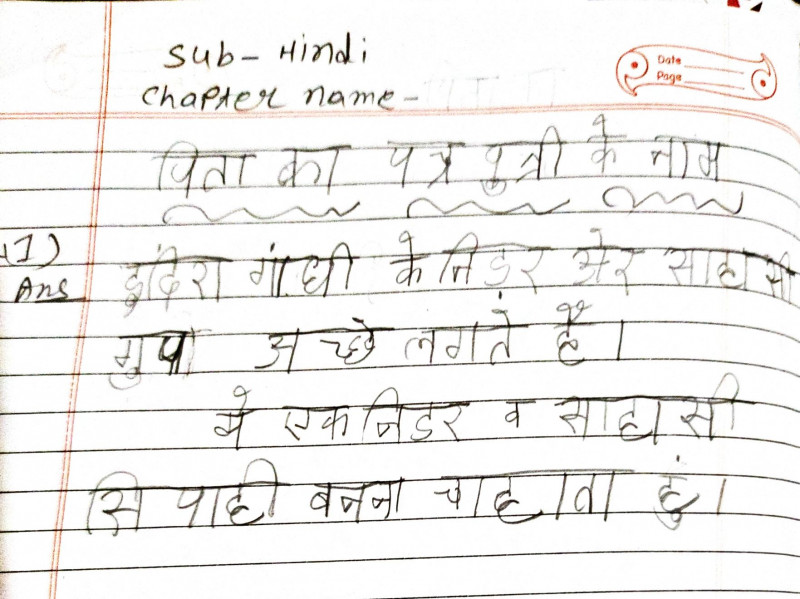 Sub- Hindi
Date
Page
Chapter name-
पिता का पत्र पुत्री के नाम
1)
इंदिरा गांधी के निडर और साहासी
Ans
गुण अच्छे लगते हैं।
मे एक निडर व साहासी
सिपाही बनना चाहाता हुं।